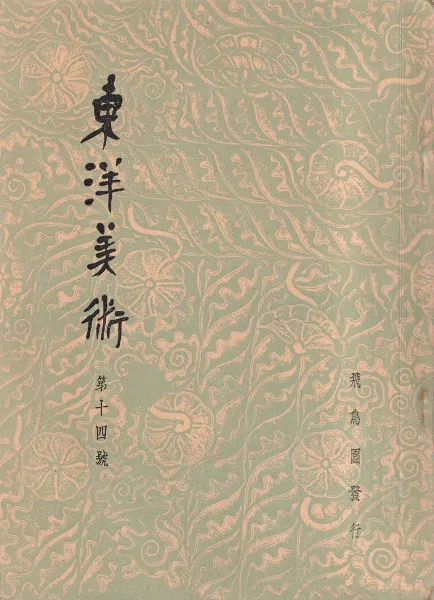 東洋美術
第十四號
飛鳥園發行